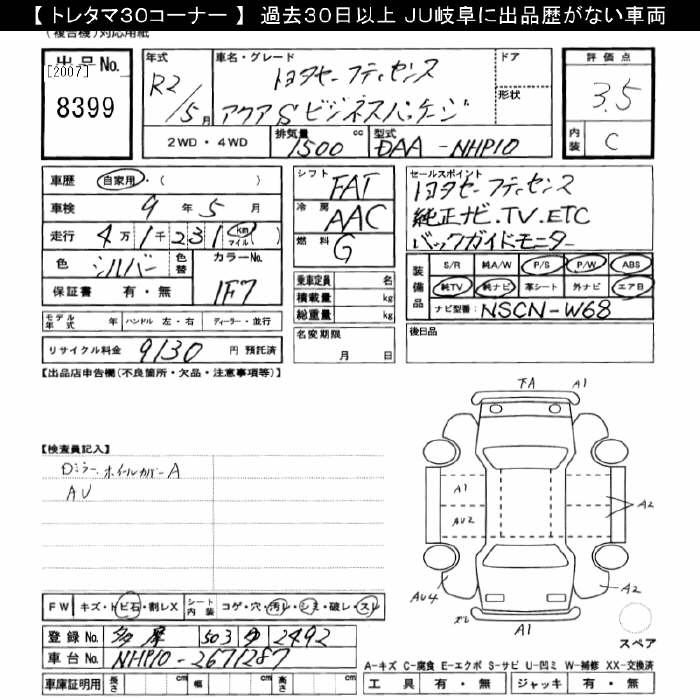 【 トレタマ30コーナー 】 過去30日以上 JU岐阜に出品歴がない車両
(複合機)対応用紙
出品No.
[2007]
8399
年式
R2/5月
車名・グレード
トヨタセーフティセンス
アクアSビジネスパッケージ
ドア
形状
2WD・4WD
排気量
1500 cc
型式
DAA-NHP10
評価点
3.5
内装
C
車歴 自家用・( )
車検 9 年 5 月
走行 4万1千231 km マイル ( )
色 シルバー 色替 カラーNo. 1F7
保証書 有・無
モデル年式 年 ハンドル 左・右 ディーラー・並行
リサイクル料金 9130 円 預託済
シフト FAT
冷房 AAC
燃料 G
乗車定員 名
積載量 kg
総重量 kg
名変期限
月 日
セールスポイント
トヨタセーフティセンス
純正ナビ.TV.ETC
バックガイドモニター
装備品
S/R 純A/W P/S P/W ABS
純TV 純ナビ 革シート 外ナビ エアB
ナビ型番: NSCN-W68
後日品
【出品店申告欄(不良箇所・欠品・注意事項等)】
【検査員記入】
Dミラー.ホイールカバーA
AU
下A A1
A1
AU2
A2
AU4
A2
A1
スペア
FW キズ・トビ石・割レX シート内装 コゲ・穴・汚レ・シミ・破レ・スレ
登録No. 多摩 503 ゆ 2492
車台No. NHP10-2671287
車庫証明用 長さ cm 幅 cm 高さ cm
A-キズ C-腐食 E-エクボ S-サビ U-凹ミ W-補修 XX-交換済
工具 有・無 ジャッキ 有・無